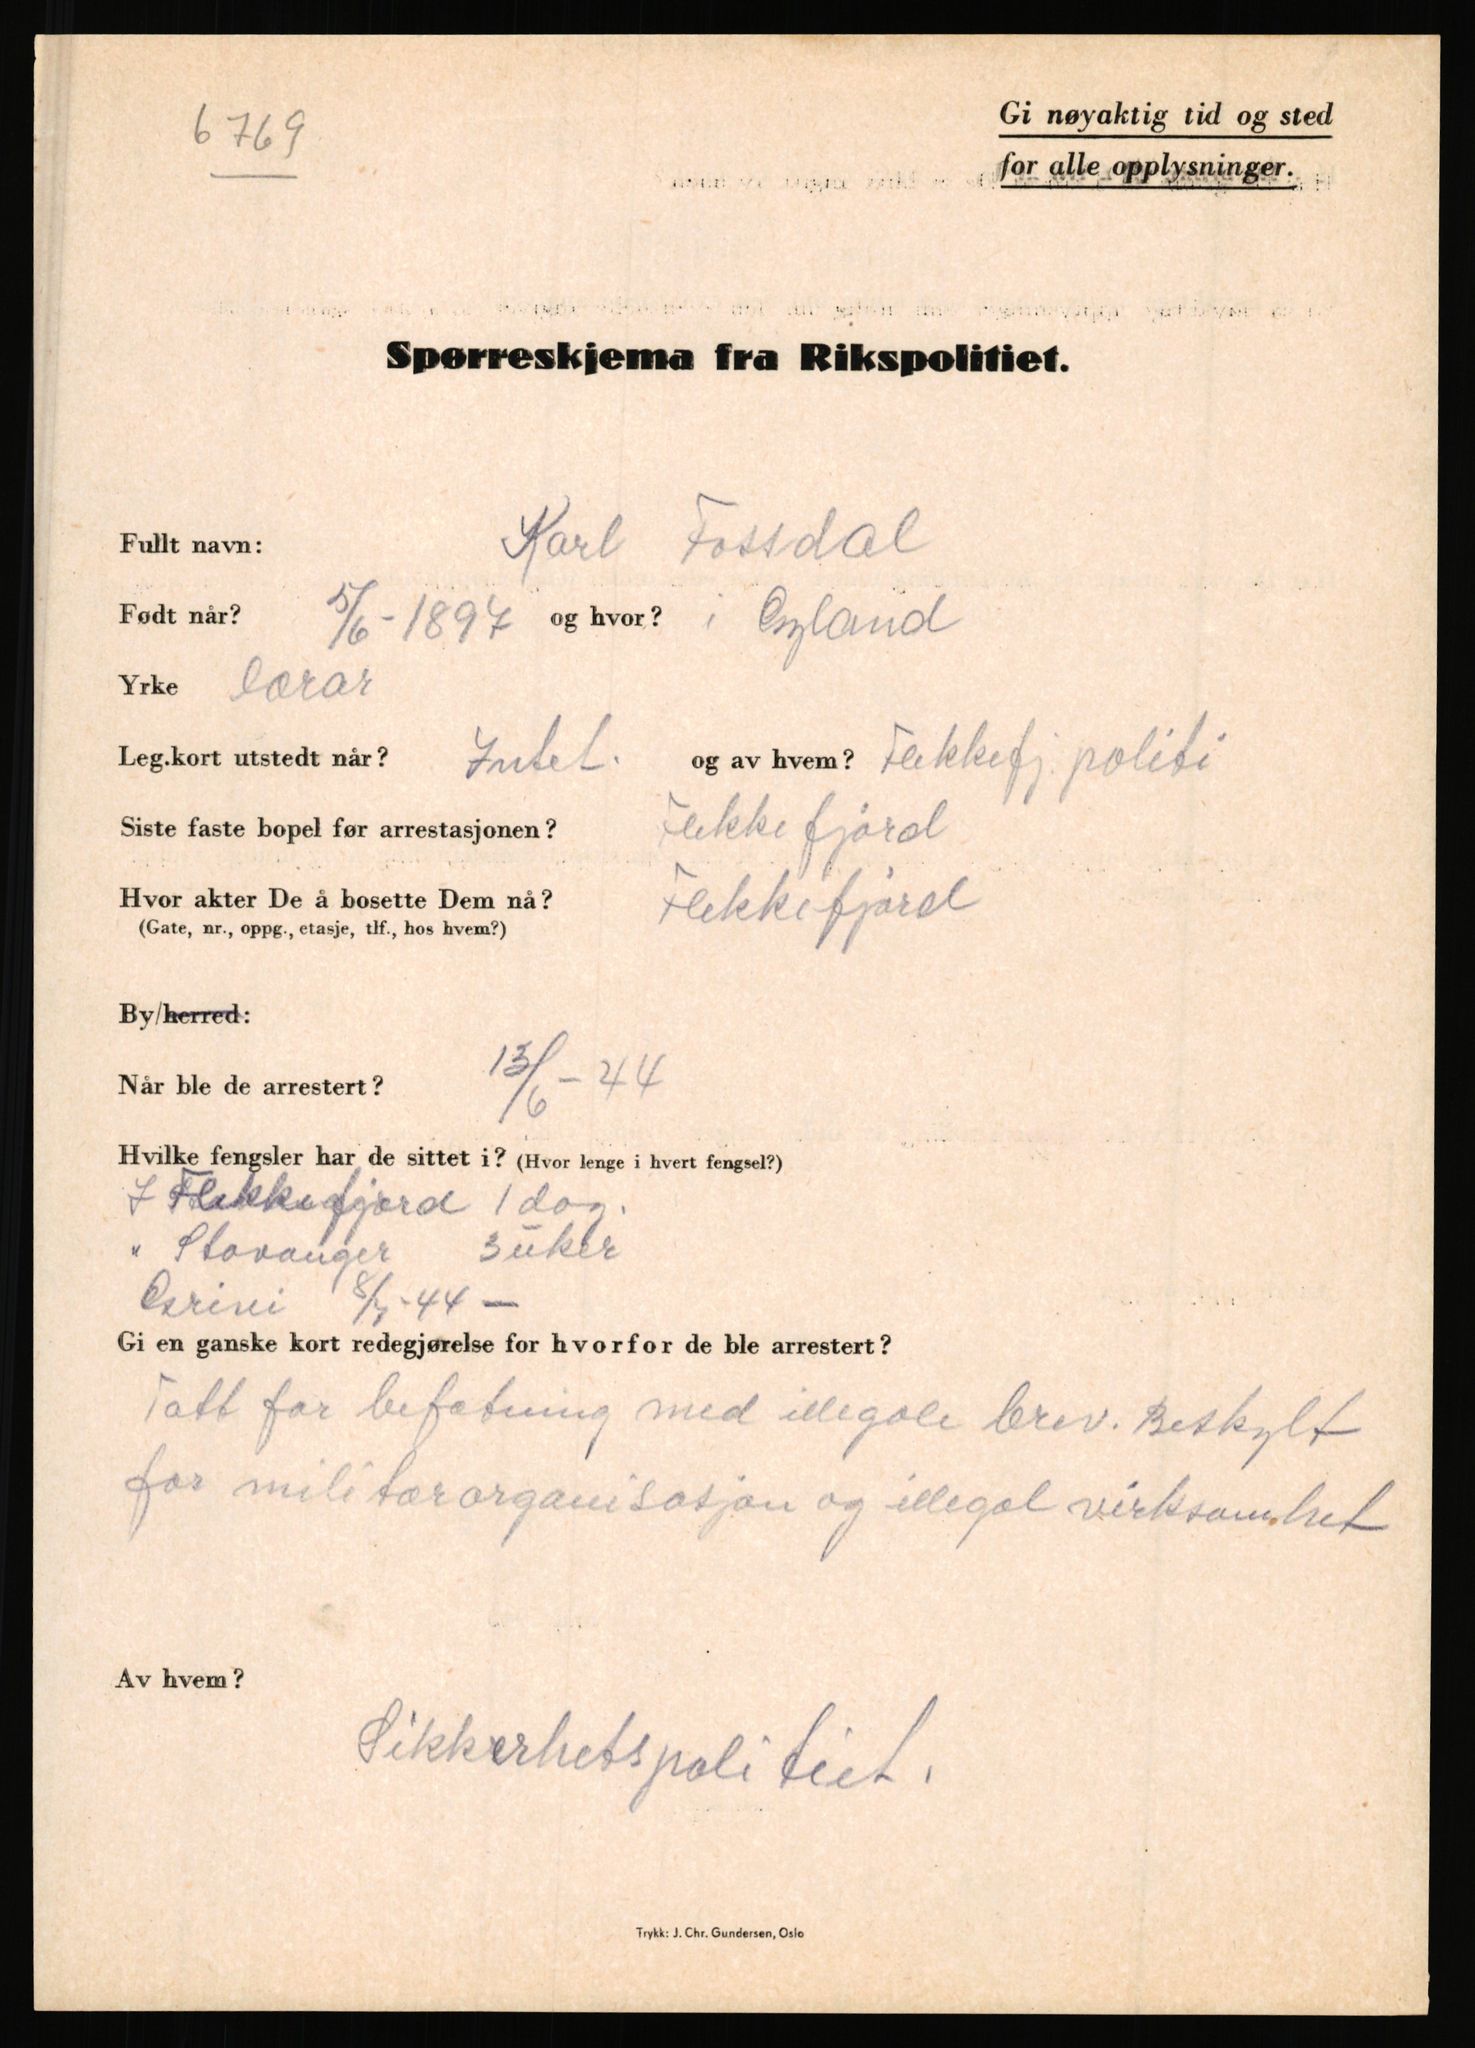 6769
Gi nøyaktig tid og sted
for alle opplysninger.
Spørreskjema fra Rikspolitiet.
Fullt navn: Karl Fossdal
Født når? 5/6-1897 og hvor? i Gyland
Yrke lærar
Leg.kort utstedt når? Intet. og av hvem? Flekkefj. politi
Siste faste bopel før arrestasjonen? Flekkefjord
Hvor akter De å bosette Dem nå? Flekkefjord
(Gate, nr., oppg., etasje, tlf., hos hvem?)
By/herred:
Når ble de arrestert? 13/6-44
Hvilke fengsler har de sittet i? (Hvor lenge i hvert fengsel?)
I Flekkefjord 1 dag.
" Stavanger 3 uker
Grini 8/7-44 —
Gi en ganske kort redegjørelse for hvorfor de ble arrestert?
Tatt for befatning med illegale brev. Beskylt
for militærorganisasjon og illegal virksomhet
Av hvem?
Sikkerhetspolitiet.
Trykk: J. Chr. Gundersen, Oslo